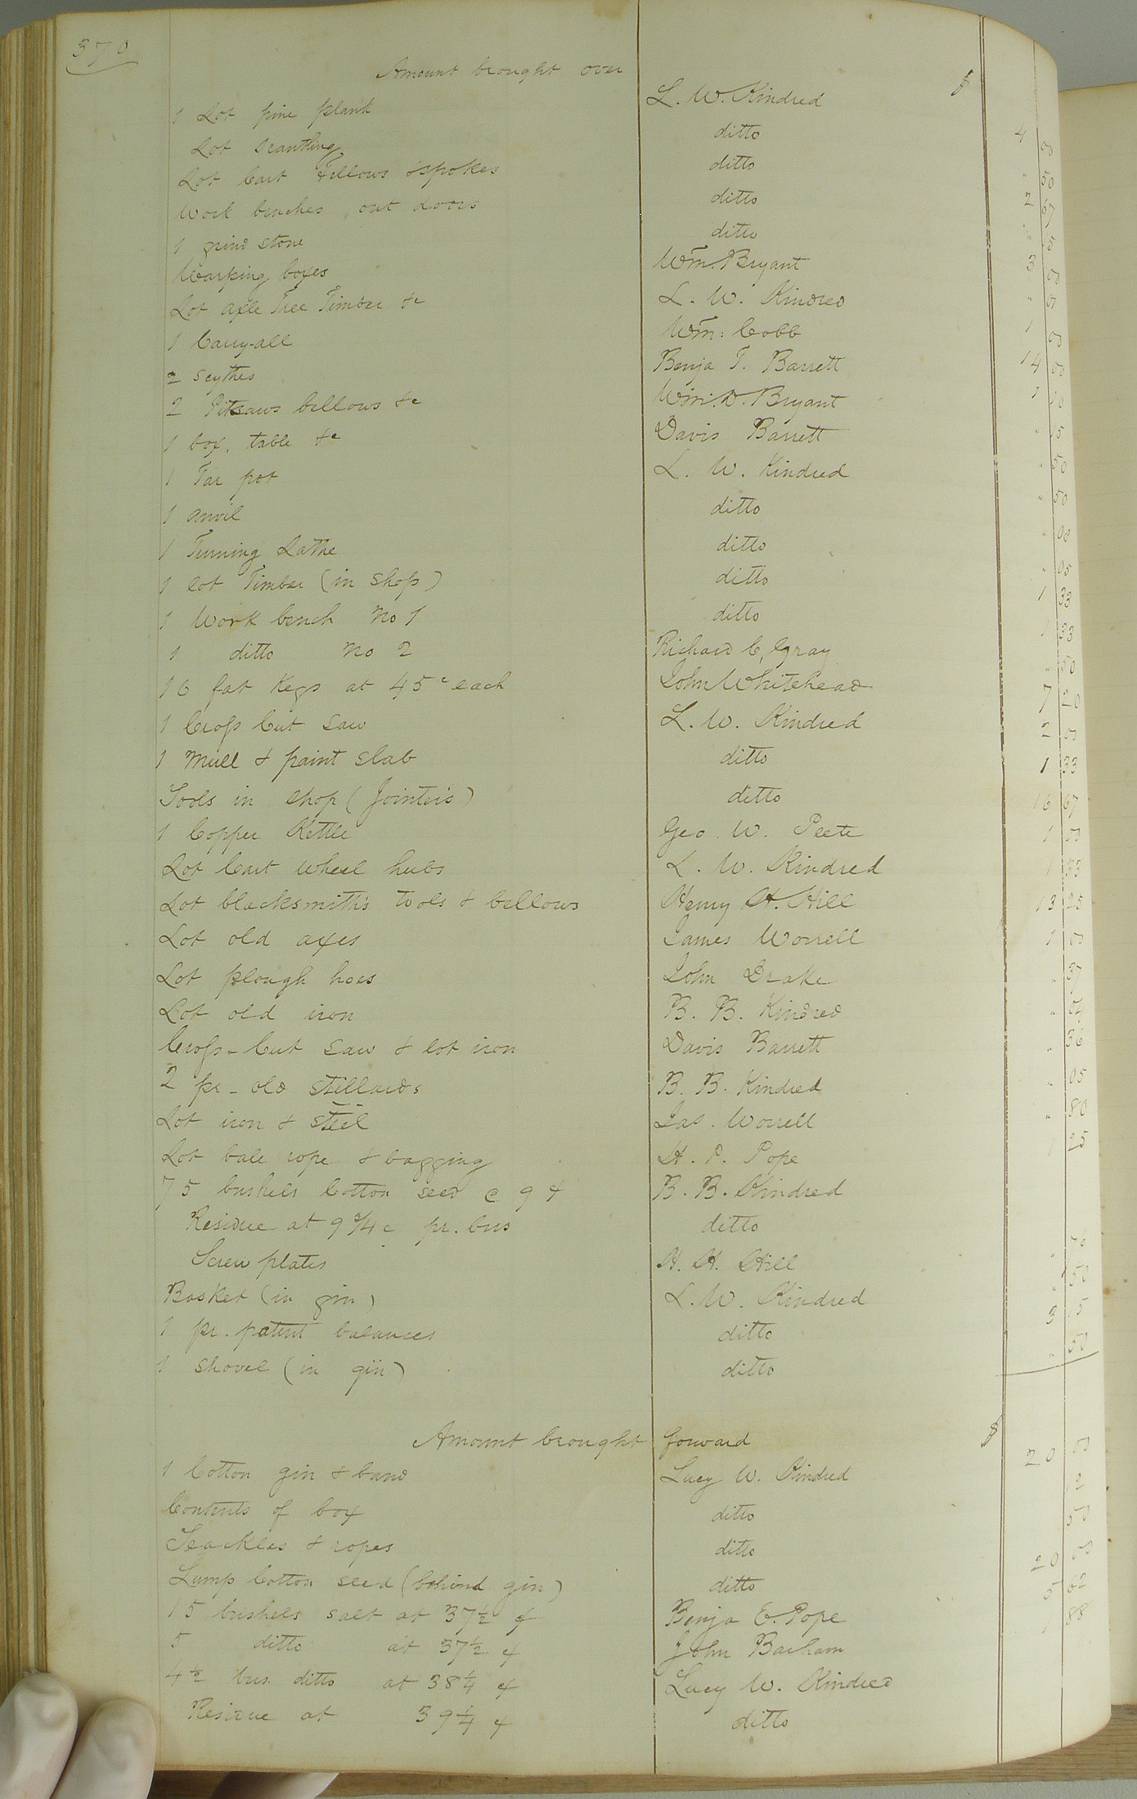 370
Amount brought over $
1 Lot pine plank L. W. Kindred 4 00
Lot scantling ditto " 50
Lot Cart Fellows & spokes ditto 2 67
Work benches, out doors ditto
1 grind stone ditto 3 00
Warping boxes Wm. Bryant
Lot axle Tree Timber &c L. W. Kindred 1 00
1 Carry-all Wm: Cobb 14 00
2 scythes Benja T. Barrett
2 Pitsaws bellows &c Wm. D. Bryant
1 box, table &c Davis Barrett " 50
1 Tar pot L. W. Kindred " 50
1 anvil ditto
1 Turning Lathe ditto " 05
1 lot Timber (in shop) ditto 1 33
1 Work bench No 1 ditto 1 33
1 ditto No 2 Richard C. Gray " 50
16 fat Kegs at 45c each John Whitehead 7 20
1 Cross Cut saw L. W. Kindred 2 00
1 Mull & paint slab ditto 1 33
Tools in shop (Jointers) ditto 16 67
1 Copper Kettle Geo. W. Peete 1 00
Lot Cart wheel hubs L. W. Kindred 1
Lot blacksmith's tools & bellows Henry H. Hill 13 25
Lot old axes James Worrell 1 00
Lot plough hoes John Drake " 37
Lot old iron B. B. Kindred "
Cross-Cut saw & lot iron Davis Barrett " 36
2 pr - old stillards B. B. Kindred " 05
Lot iron & steel Jas. Worrell " 80
Lot bale rope & bagging H. D. Pope 1 25
75 bushels Cotton seed @ 9 ¢ B. B. Kindred
Residue at 9 3/4 c pr. bus ditto
Screw plates H. H. Hill
Basket (in gin) L. W. Kindred " 50
1 pr. patent balances ditto 3
1 shovel (in gin) ditto " 50
Amount brought forward $
1 Cotton gin & band Lucy W. Kindred 20 00
Contents of box ditto
Teackles & ropes ditto 50
Lump Cotton seed (behind gin) ditto 20 00
15 bushels salt at 37 1/2 ¢ Benja E. Pope 5 62
5 ditto at 37 1/2 ¢ John Barham " 88
4 1/2 bus. ditto at 38 1/4 ¢ Lucy W. Kindred
Residue at 39 1/4 ¢ ditto